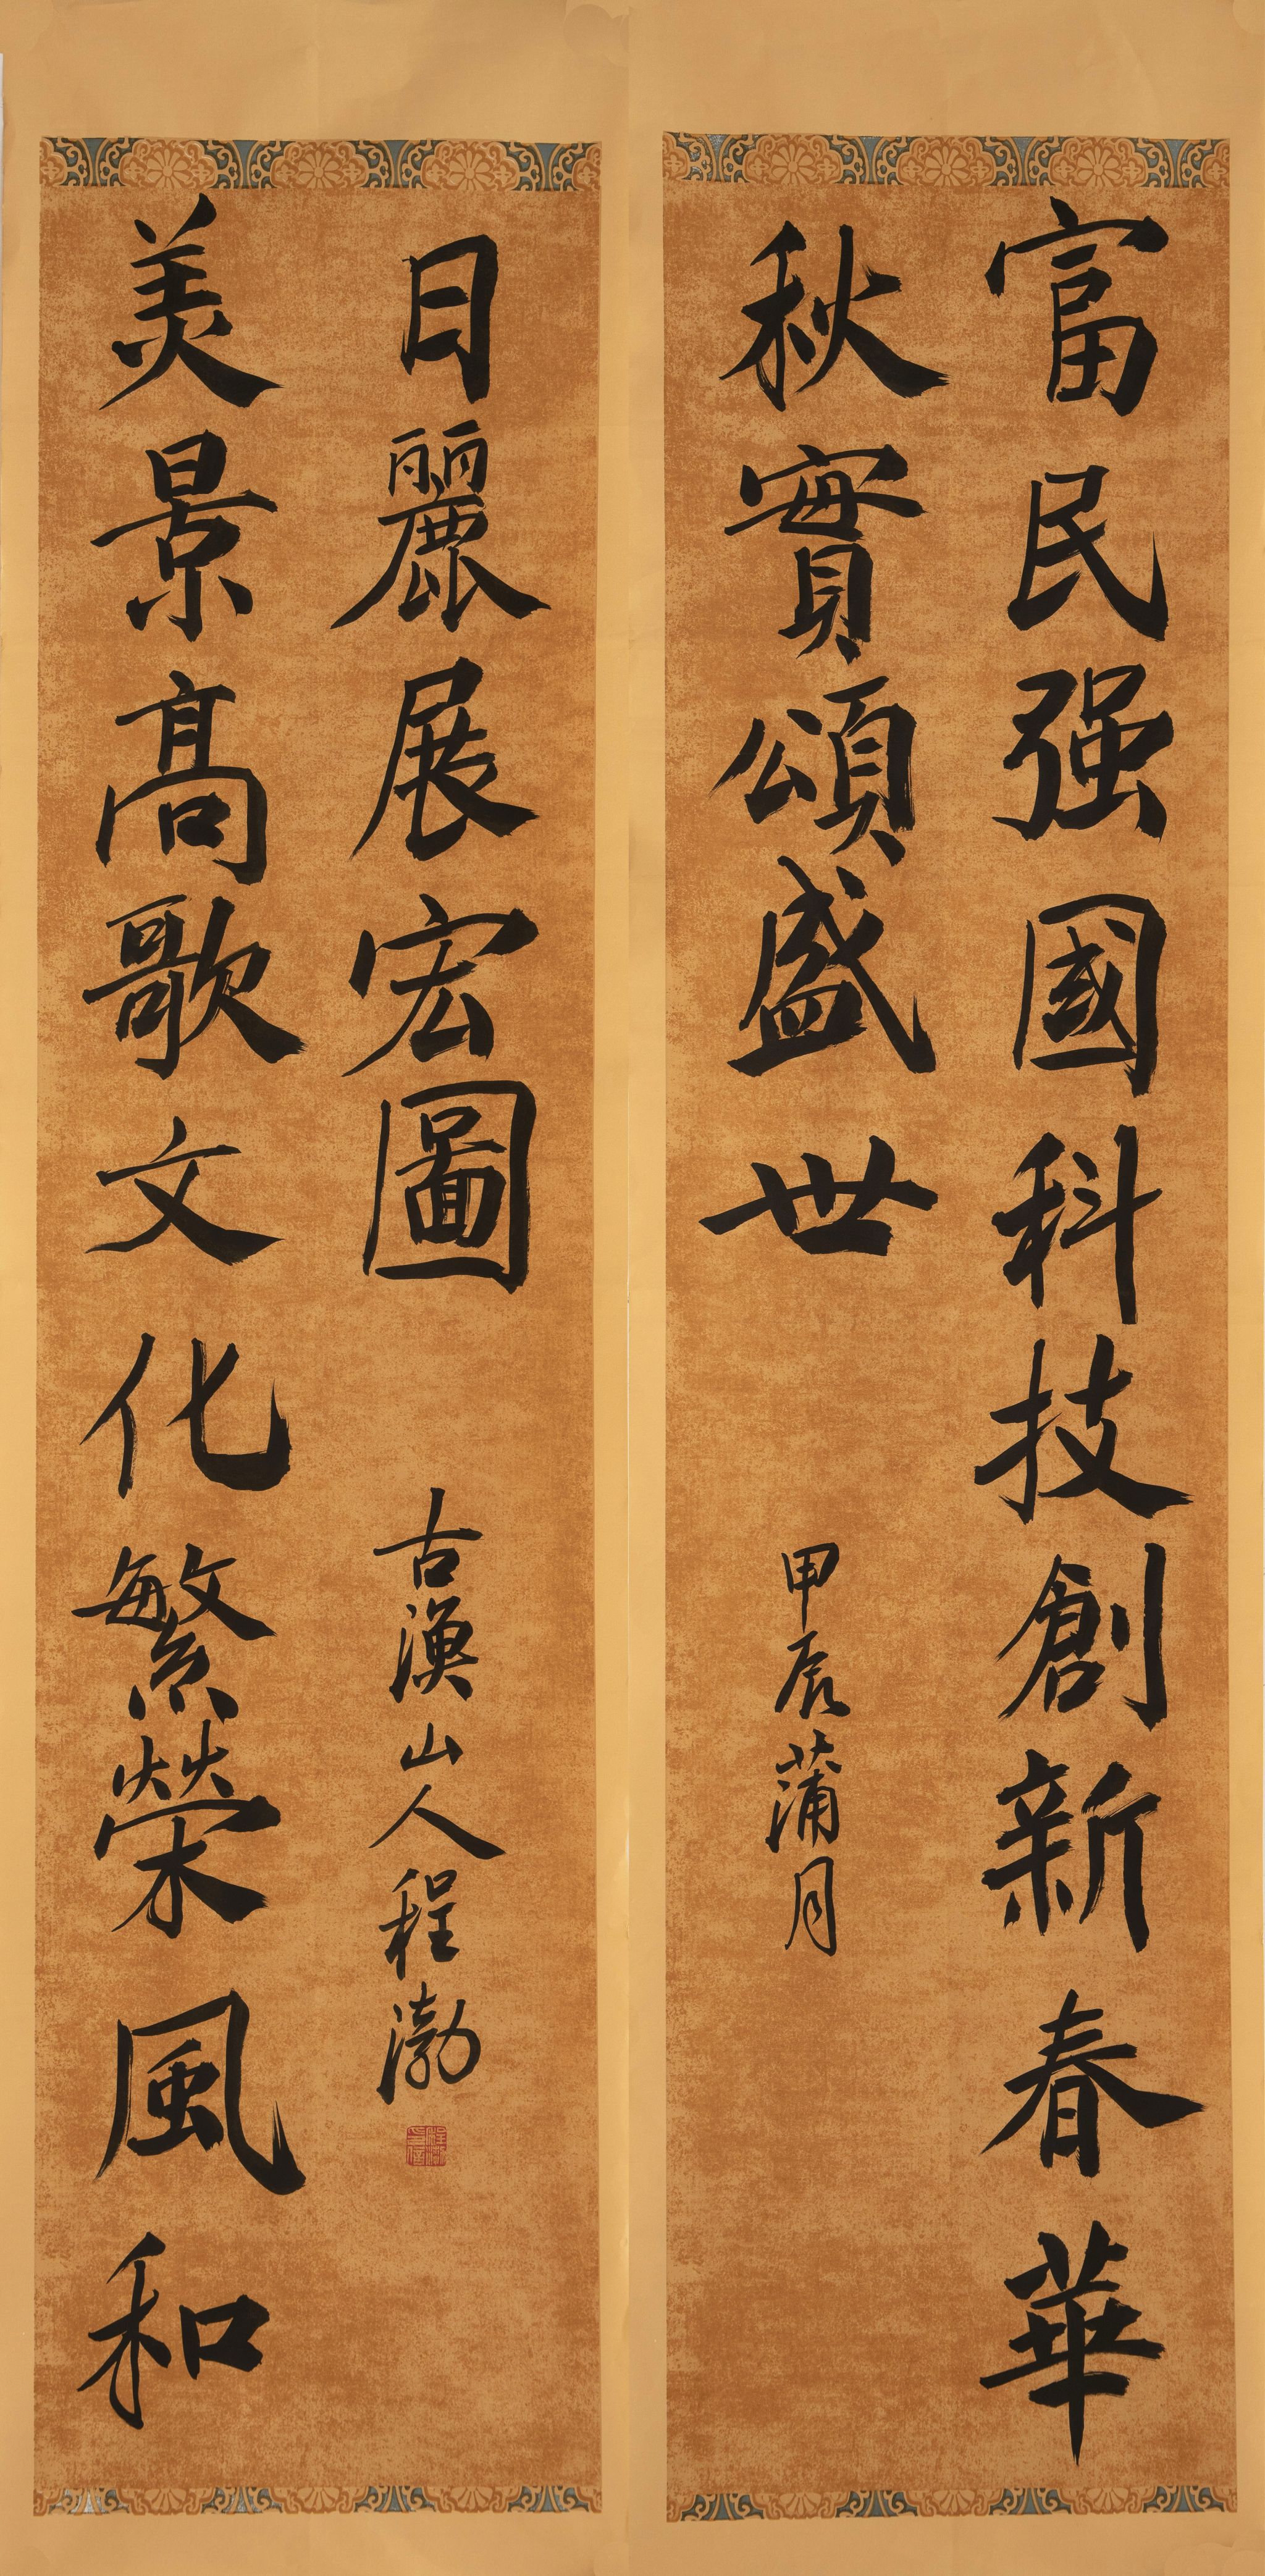 富民强國科技創新春華
秋實頌盛世
甲辰蒲月
美景高歌文化繁榮風和
日麗展宏圖
古漁山人程渤